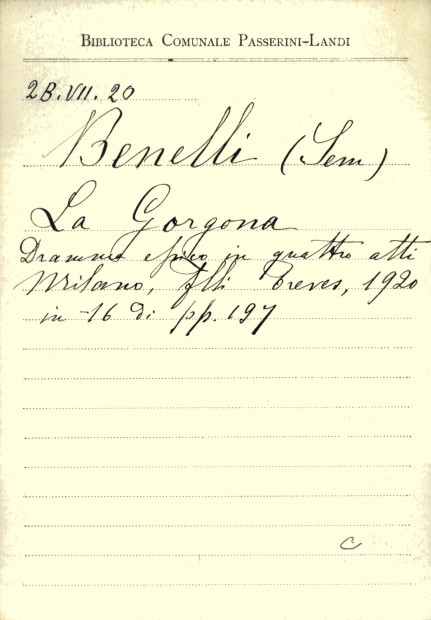 BIBLIOTECA COMUNALE PASSERINI-LANDI
2B.VII.20
Benelli (Sem)
La Gorgona
Dramma epico in quattro atti
Milano, Flli Treves, 1920
in-16 di pp. 197
C